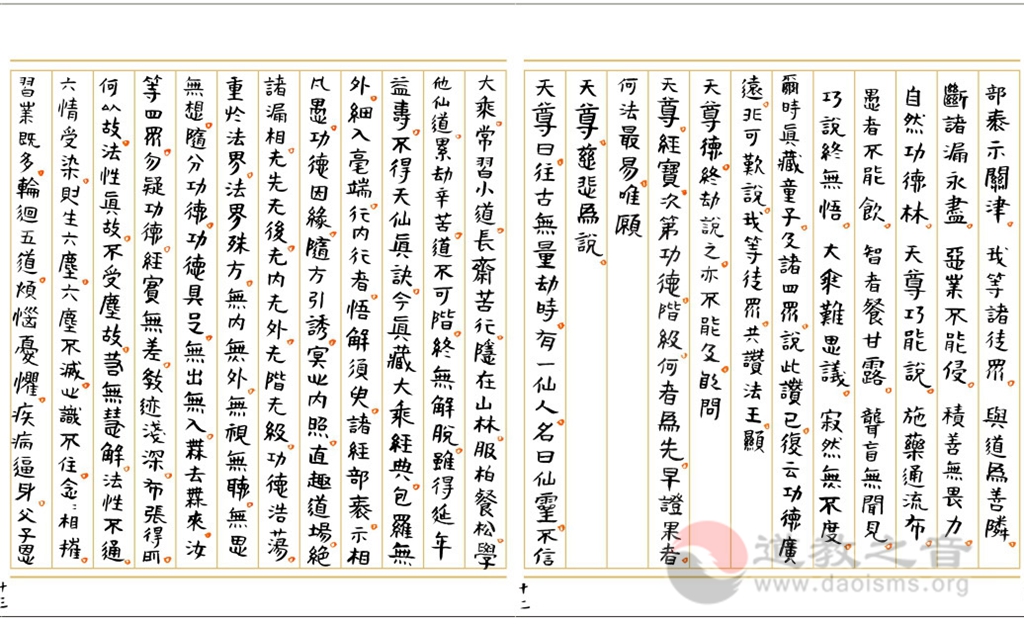 部袠示關津 我等諸徒眾 與道為善隣
斷諸漏永盡 惡業不能侵 積善無畏力
自然功德林 天尊巧能說 施藥通流布
愚者不能飲 智者餐甘露 聾盲無聞見
巧說終無悟 大乘難思議 寂然無不度
爾時眞藏童子及諸四眾說此讚已復云功德廣
遠非可歎說我等徒眾共讚法王顯
天尊德終劫說之亦不能及 問
天尊經寶次第功德階級何者為先早證果者
何法最易唯願
天尊慈悲為說
天尊曰往古無量劫時有一仙人名曰仙靈不信
十二
大乘常習小道長齋苦行隱在山林服柏餐松學
他仙道累劫辛苦道不可階終無解脫雖得延年
益壽不得天仙眞訣今眞藏大乘經典包羅無
外細入毫端行內行者悟解須臾諸經部袠示相
凡愚功德因緣隨方引誘冥心內照直趣道場絕
諸漏相无先无後无內无外无階无級功德浩蕩
重於法界法界殊方無內無外無視無聽無思
無想隨分功德功德具足無出無入無去無來汝
等四眾勿疑功德經實無差教迹淺深布張得所
何以故法性眞故不受塵故若無慧解法性不通
六情受染則生六塵六塵不滅心識不住念〻相摧
習業既多輪迴五道煩惱憂懼疾病逼身父子恩
十三
道教之音
www.daoisms.org